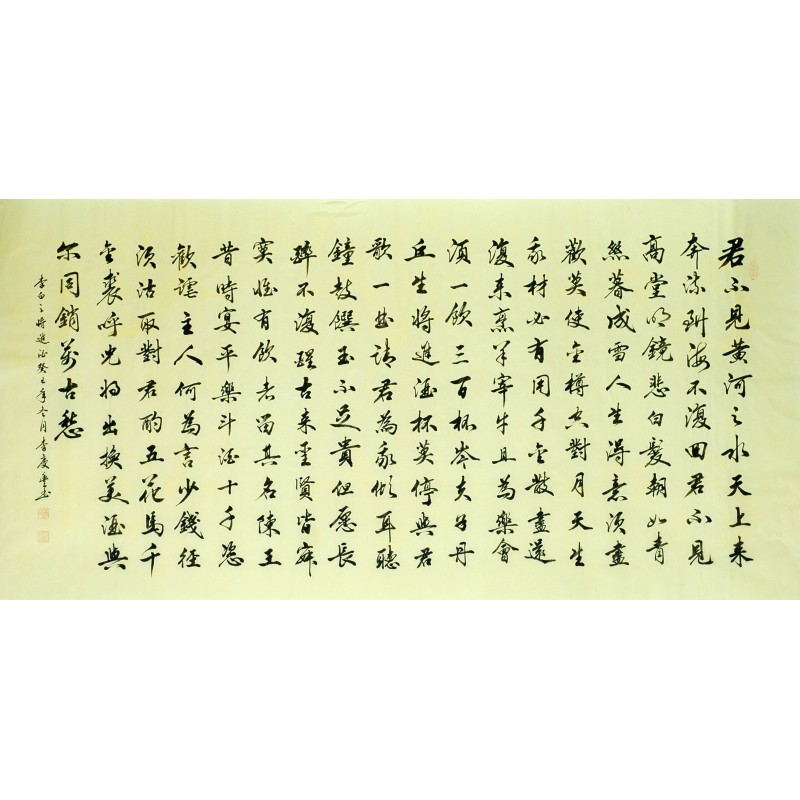 君不见黄河之水天上来
奔流到海不復回君不見
高堂明鏡悲白髮朝如青
絲暮成雪人生得意須盡
歡莫使金樽空對月天生
我材必有用千金散盡還
復來烹羊宰牛且為樂會
須一飲三百杯岑夫子丹
丘生將進酒杯莫停與君
歌一曲請君為我傾耳聽
鐘鼓饌玉不足貴但愿長
醉不復醒古來聖賢皆寂
寞惟有飲者留其名陳王
昔時宴平樂斗酒十千恣
歡謔主人何為言少錢徑
須沽取對君酌五花馬千
金裘呼兒將出換美酒與
尔同銷萬古愁
李白之將進酒癸巳年冬月李慶